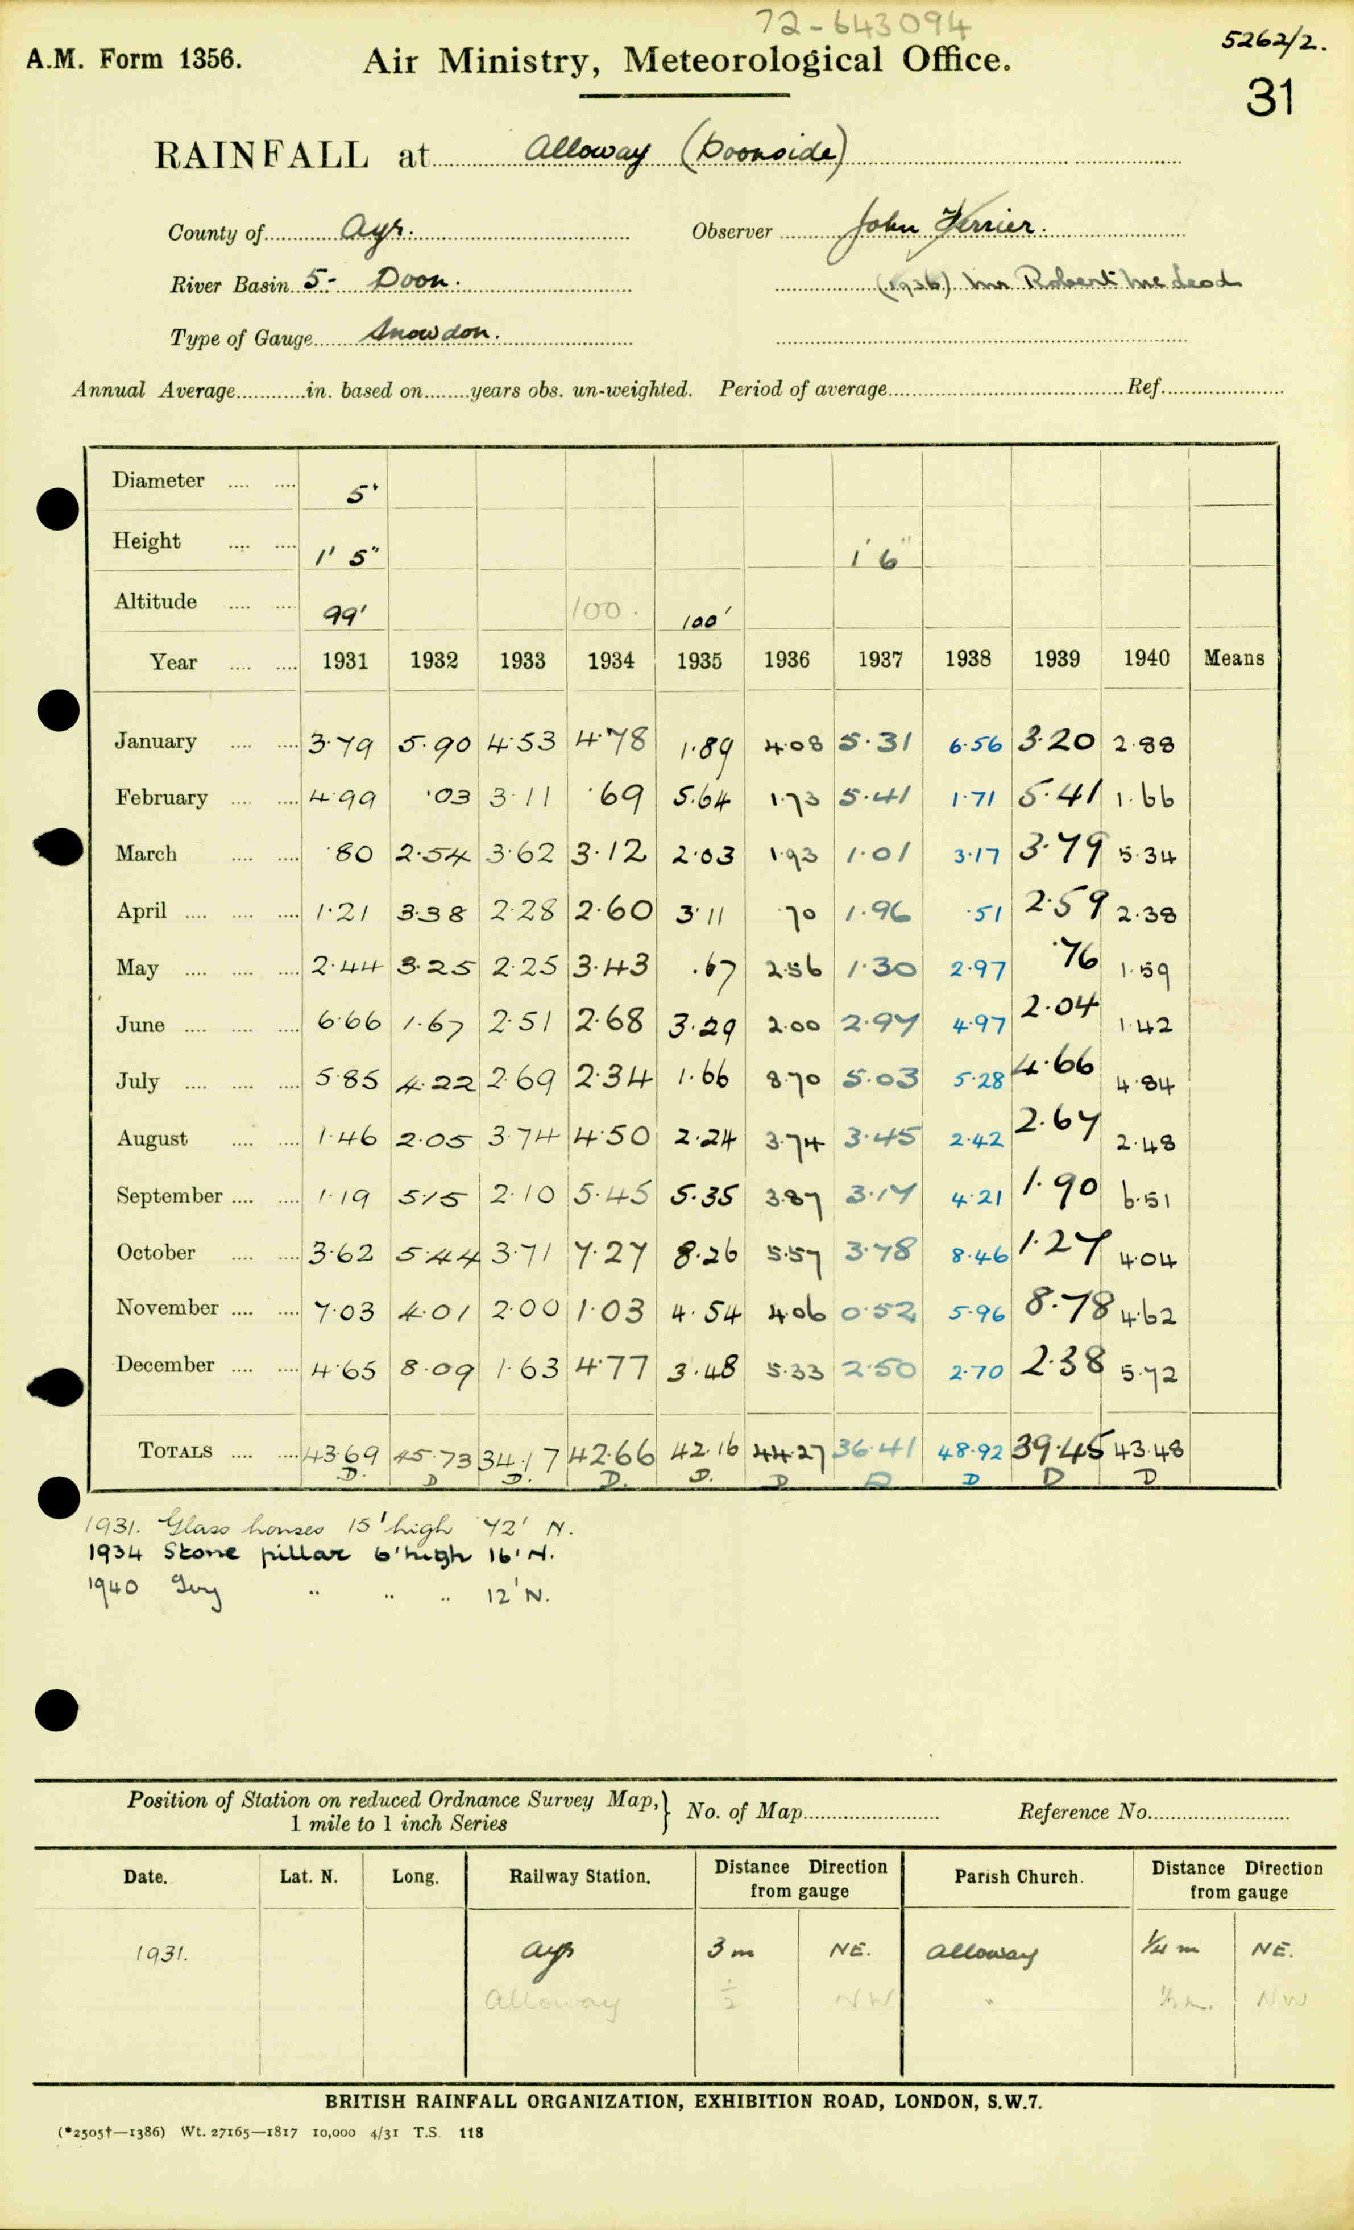 72-643094
5262/2.
A.M. Form 1356. Air Ministry, Meteorological Office.
31
RAINFALL at Alloway (Doonside)
County of Ayr. Observer John Ferrier.
River Basin 5- Doon. (1936) Mr Robert McLeod
Type of Gauge Snowdon.
Annual Average in. based on years obs. un-weighted. Period of average Ref.
Diameter 5"
Height 1' 5" 1' 6"
Altitude 99' 100. 100'
Year 1931 1932 1933 1934 1935 1936 1937 1938 1939 1940 Means
January 3.79 5.90 4.53 4.78 1.89 4.08 5.31 6.56 3.20 2.88
February 4.99 .03 3.11 .69 5.64 1.73 5.41 1.71 5.41 1.66
March .80 2.54 3.62 3.12 2.03 1.93 1.01 3.17 3.79 5.34
April 1.21 3.38 2.28 2.60 3.11 .70 1.96 .51 2.59 2.38
May 2.44 3.25 2.25 3.43 .67 2.56 1.30 2.97 .76 1.59
June 6.66 1.67 2.51 2.68 3.29 2.00 2.97 4.97 2.04 1.42
July 5.85 4.22 2.69 2.34 1.66 8.70 5.03 5.28 4.66 4.84
August 1.46 2.05 3.74 4.50 2.24 3.74 3.45 2.42 2.67 2.48
September 1.19 5.15 2.10 5.45 5.35 3.87 3.17 4.21 1.90 6.51
October 3.62 5.44 3.71 7.27 8.26 5.57 3.78 8.46 1.27 4.04
November 7.03 4.01 2.00 1.03 4.54 4.06 0.52 5.96 8.78 4.62
December 4.65 8.09 1.63 4.77 3.48 5.33 2.50 2.70 2.38 5.72
TOTALS 43.69 45.73 34.17 42.66 42.16 44.27 36.41 48.92 39.45 43.48
D. D D. D. D. D D D D D
1931. Glass houses 15' high 72' N.
1934 Stone pillar 6' high 16' N.
1940 Ivy " " " 12' N.
Position of Station on reduced Ordnance Survey Map, 1 mile to 1 inch Series } No. of Map Reference No.
Date. Lat. N. Long. Railway Station. Distance Direction from gauge Parish Church. Distance Direction from gauge
1931. Ayr 3 m NE. Alloway 1/4 m NE.
Alloway 1/2 NW " 1/2 m. NW
BRITISH RAINFALL ORGANIZATION, EXHIBITION ROAD, LONDON, S.W.7.
(*2505†—1386) Wt. 27165—1817 10,000 4/31 T.S. 118